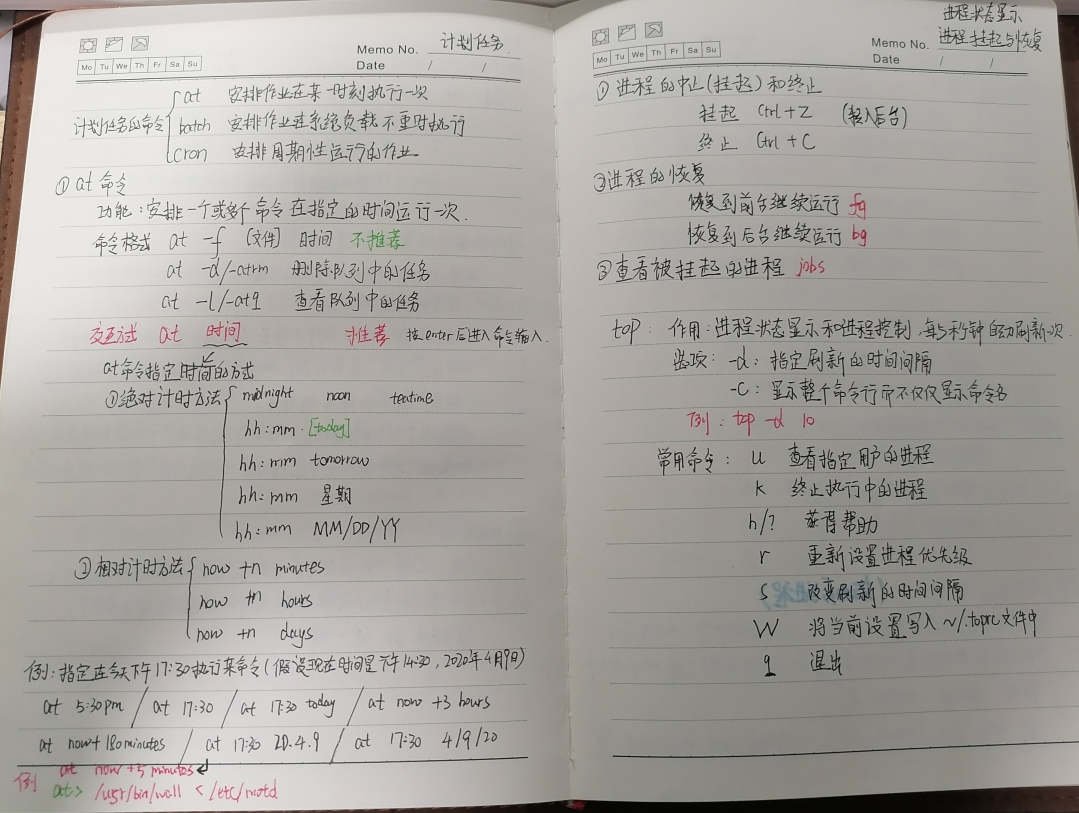 计划任务
Memo No.
Mo Tu We Th Fr Sa Su
Date / /
计划任务的命令
at 安排作业在某一时刻执行一次
batch 安排作业在系统负载不重时执行
cron 安排周期性运行的作业
① at 命令
功能：安排一个或多个命令在指定的时间运行一次.
命令格式 at -f [文件] 时间 不推荐
at -d/-atrm 删除队列中的任务
at -l/-atq 查看队列中的任务
交互式 at 时间 推荐 按enter后进入命令输入.
at命令指定时间的方式
①绝对计时方法
midnight noon teatime
hh:mm [today]
hh:mm tomorrow
hh:mm 星期
hh:mm MM/DD/YY
②相对计时方法
now +n minutes
now +n hours
now +n days
例:指定在今天下午17:30执行某命令(假设现在时间是下午14:30,2020年4月9日)
at 5:30pm / at 17:30 / at 17:30 today / at now +3 hours
at now+180minutes / at 17:30 20.4.9 / at 17:30 4/9/20
例 at now +5 minutes↵
at> /usr/bin/wall < /etc/motd
进程状态显示
进程挂起与恢复
Memo No.
Mo Tu We Th Fr Sa Su
Date / /
① 进程的中止(挂起)和终止
挂起 Ctrl+Z (转入后台)
终止 Ctrl+C
②进程的恢复
恢复到前台继续运行 fg
恢复到后台继续运行 bg
③查看被挂起的进程 jobs
top: 作用:进程状态显示和进程控制,每5秒钟自动刷新一次.
选项: -d: 指定刷新的时间间隔
-c: 显示整个命令行而不仅仅显示命令名
例: top -d 10
常用命令: u 查看指定用户的进程
k 终止执行中的进程
h/? 获得帮助
r 重新设置进程优先级
s 改变刷新的时间间隔
W 将当前设置写入~/.toprc文件中
q 退出